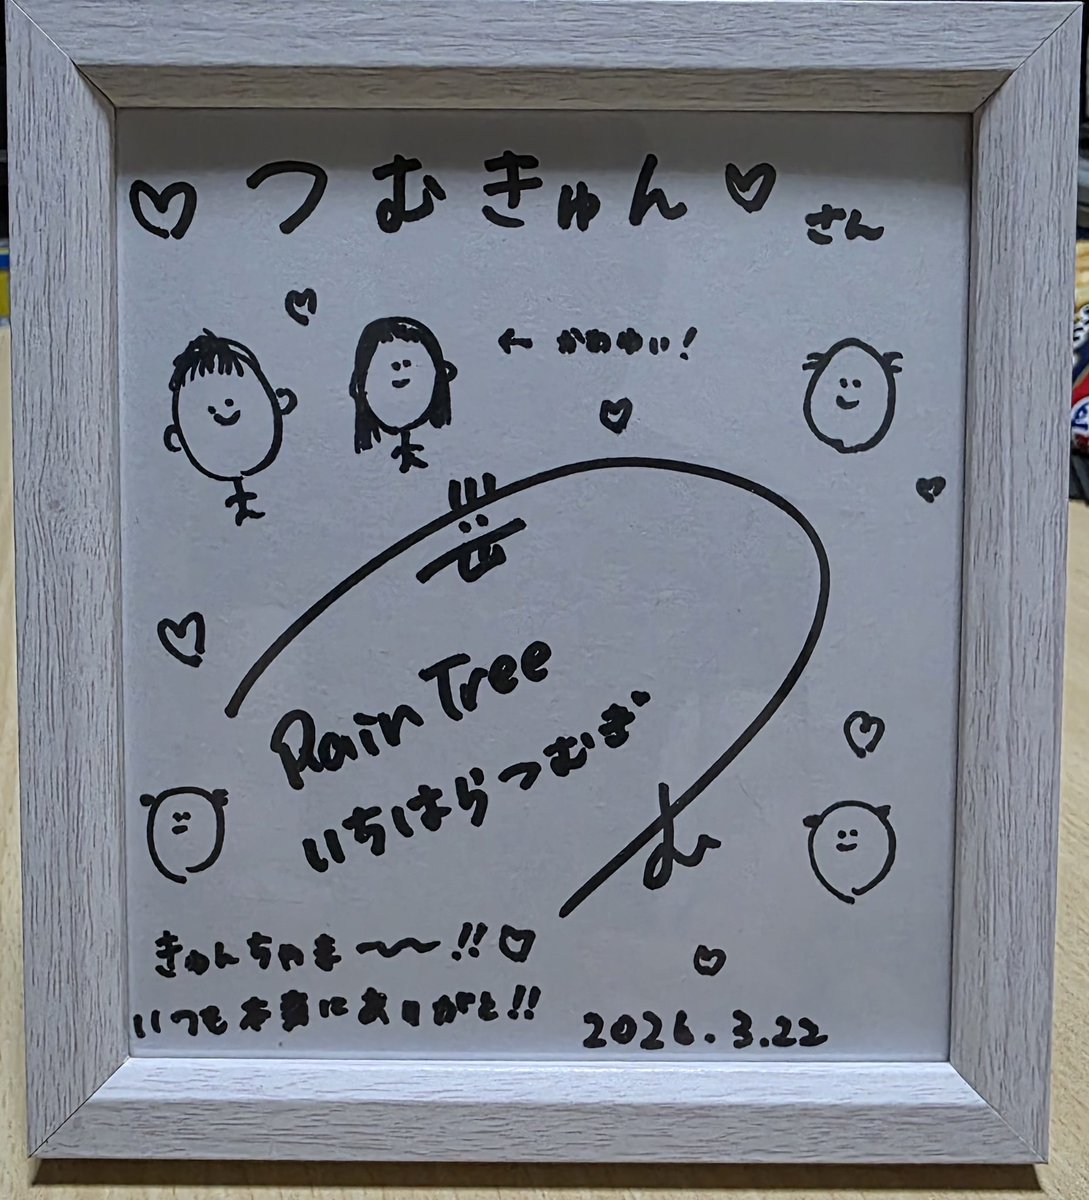 ♡つむきゅん♡さん
← かわゆい!
Rain Tree
いちはらつむぎ
む
きゅんちゃま〜〜!!♡
いつも本当にありがと!!
2026.3.22